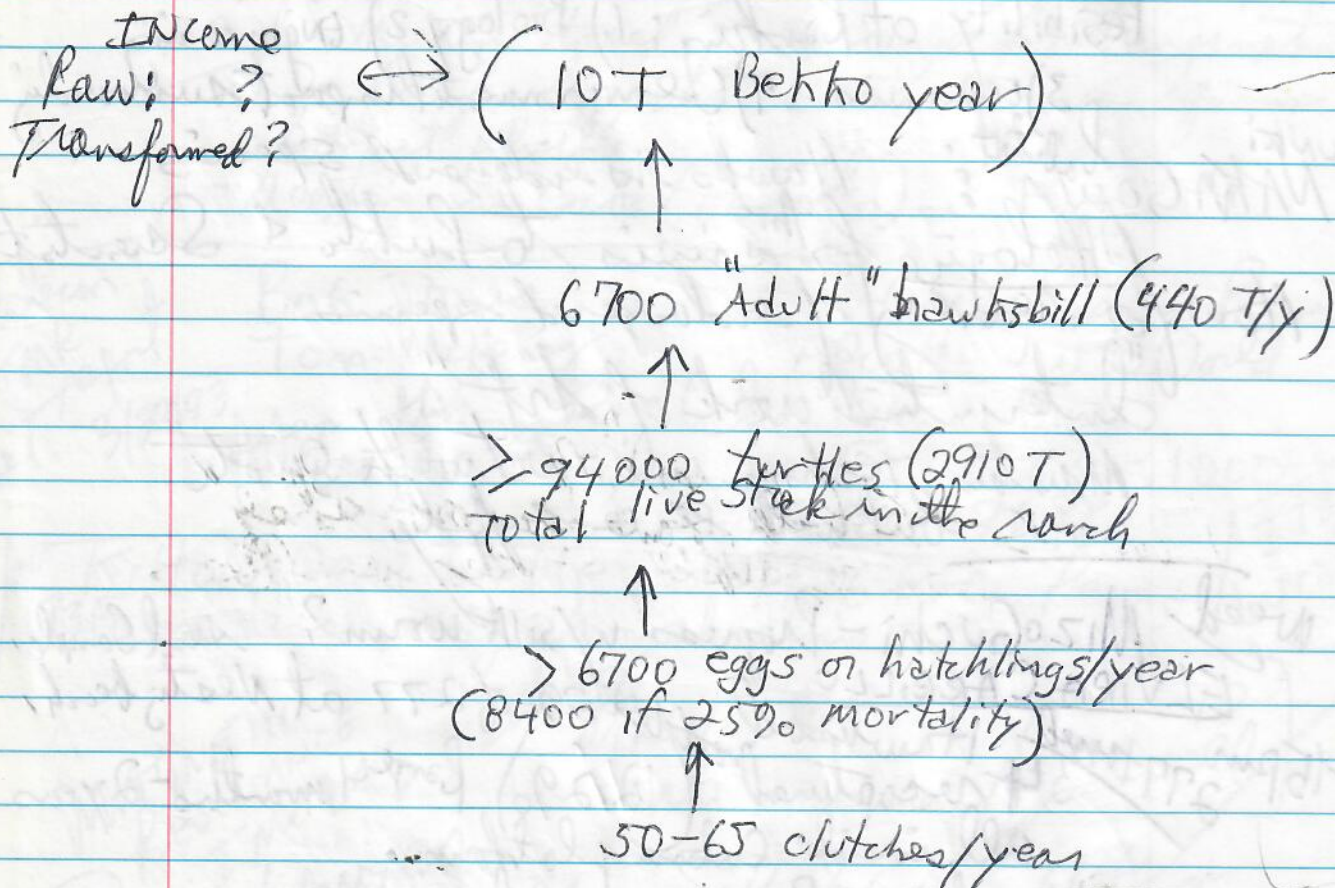 INcome
Raw: ? ↔ (10 T Bekko year)
Transformed?
↑
6700 "Adult" hawksbill (440 T/y)
↑
≥ 94000 turtles (2910 T)
Total live stock in the ranch
↑
> 6700 eggs or hatchlings/year
(8400 if 25% mortality)
↑
50-65 clutches/year